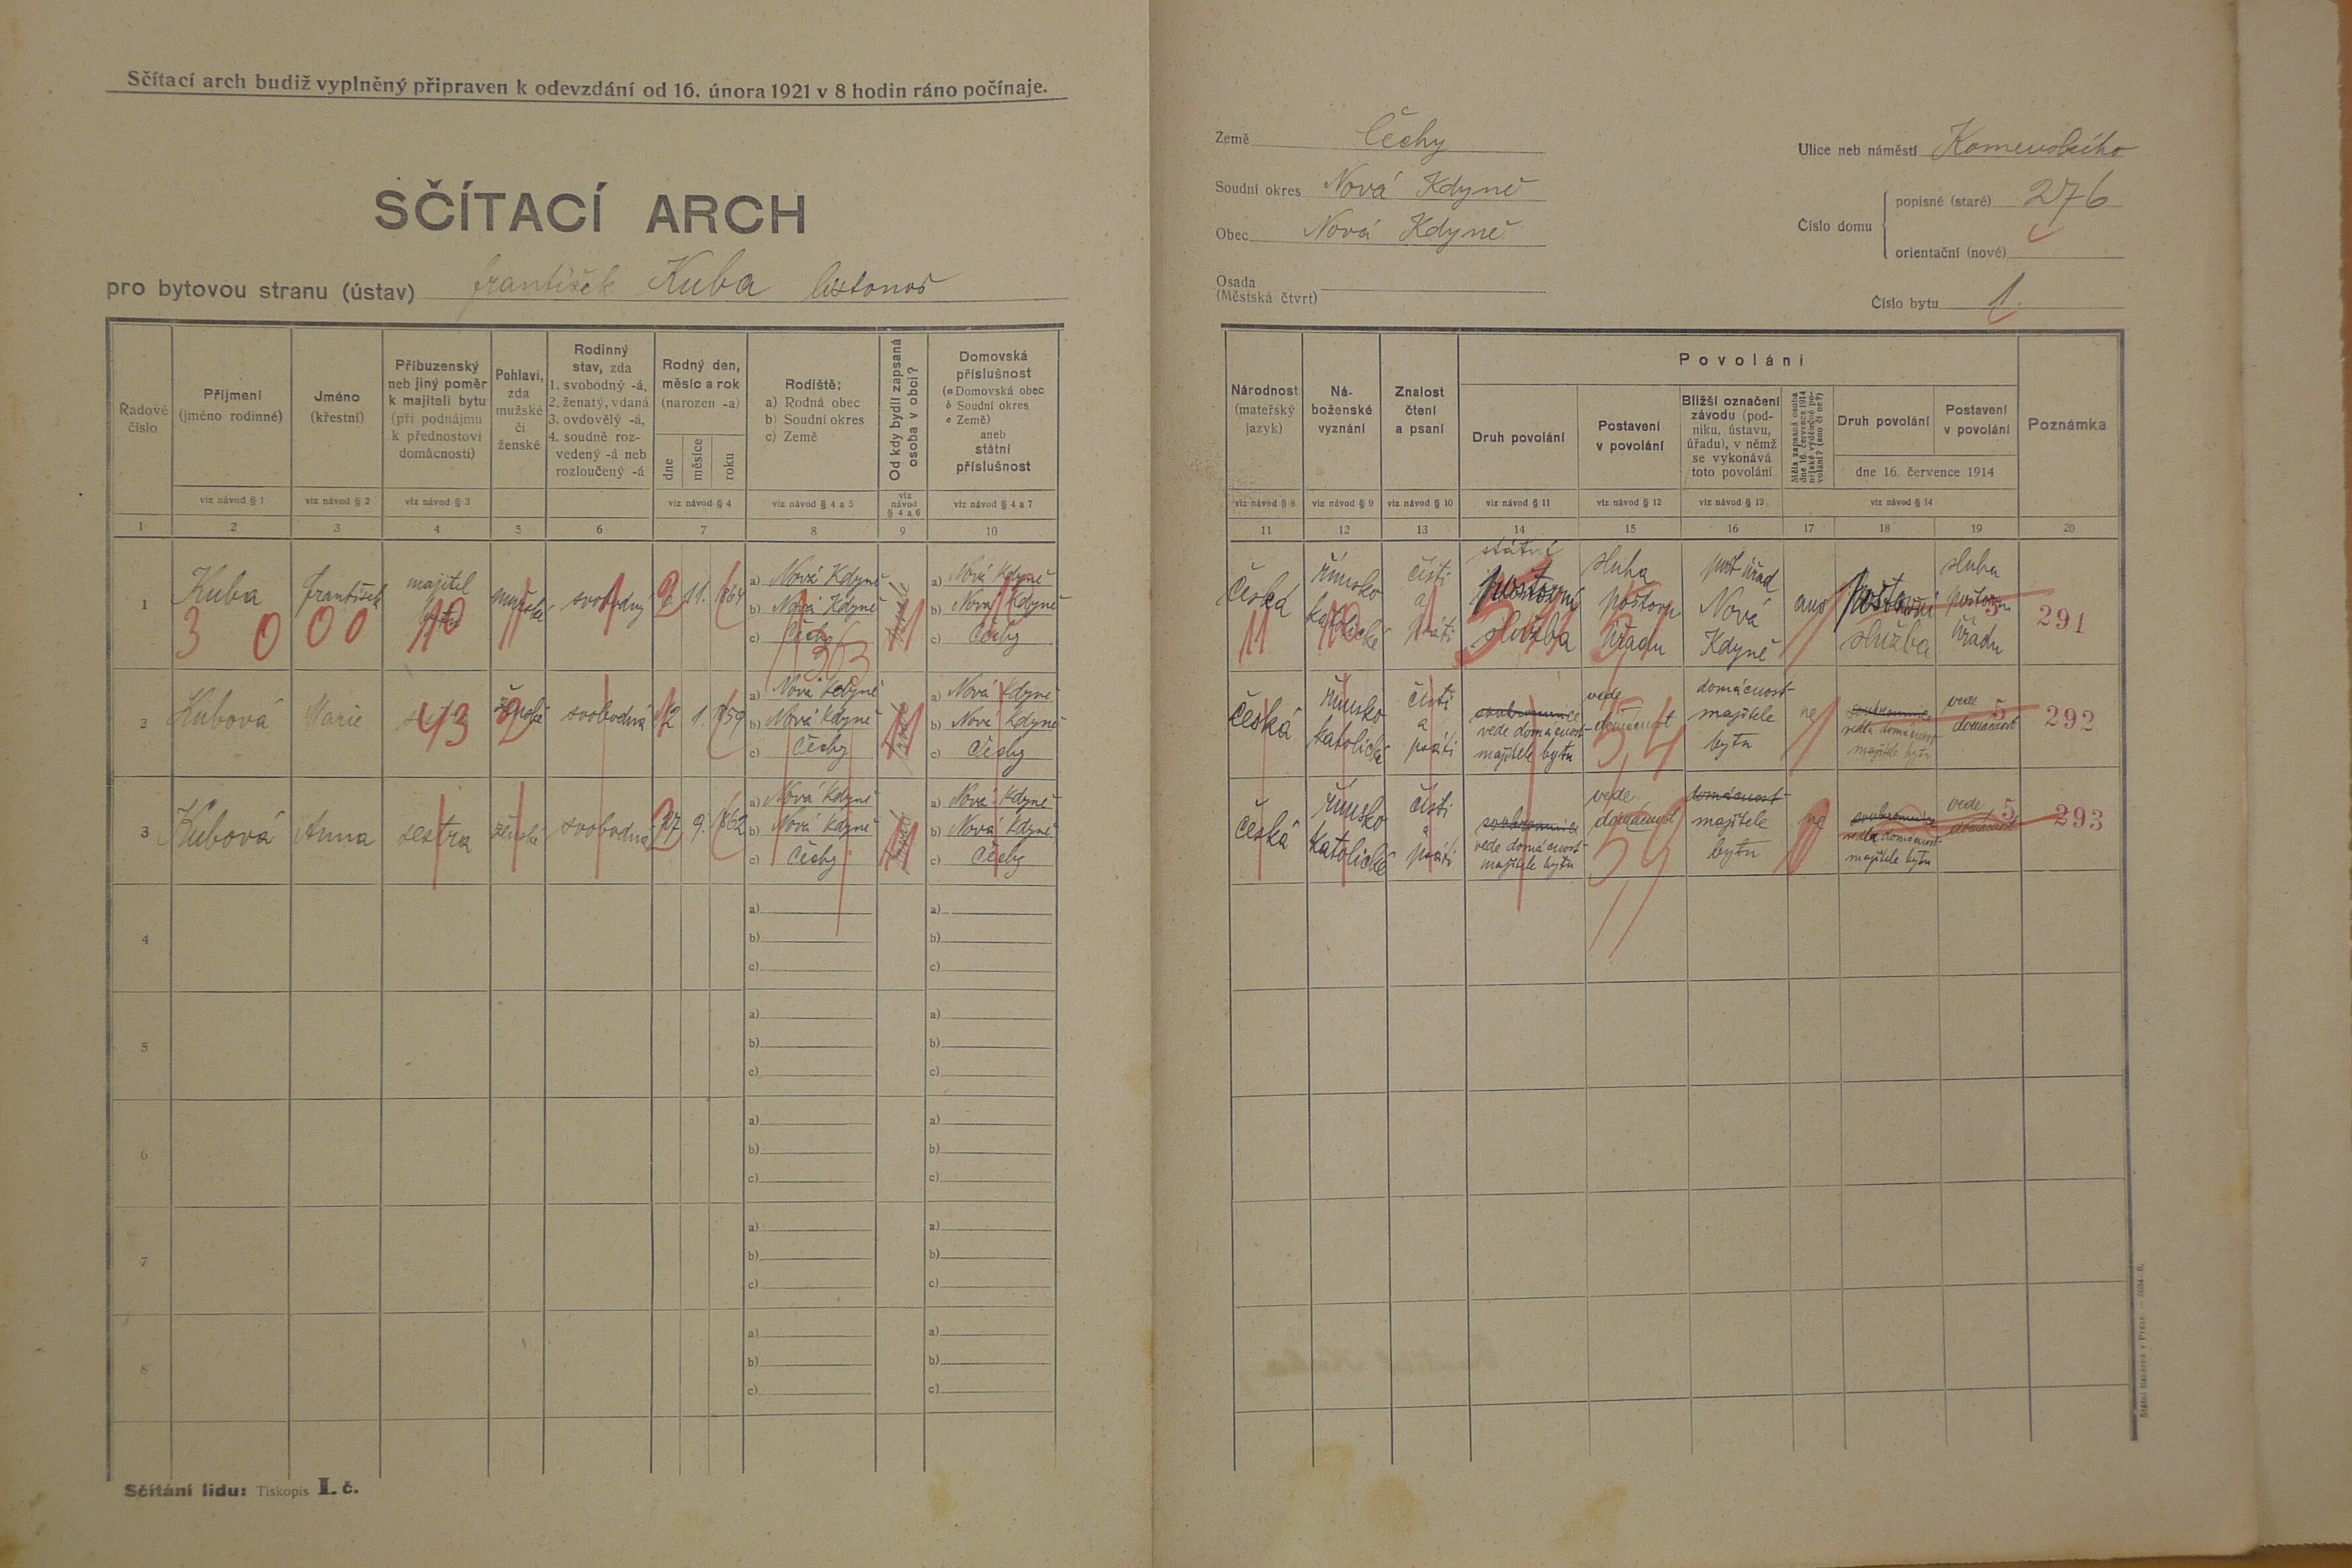 Sčítací arch budiž vyplněný připraven k odevzdání od 16. února 1921 v 8 hodin ráno počínaje.
SČÍTACÍ ARCH
pro bytovou stranu (ústav) František Kuba listonoš
Řadové číslo
Příjmení (jméno rodinné)
viz návod § 1
Jméno (křestní)
viz návod § 2
Příbuzenský neb jiný poměr k majiteli bytu (při podnájmu k přednostovi domácnosti)
viz návod § 3
Pohlaví, zda mužské či ženské
Rodinný stav, zda
1. svobodný -á,
2. ženatý, vdaná
3. ovdovělý -á,
4. soudně rozvedený -á neb rozloučený -á
Rodný den, měsíc a rok (narozen -a)
dne
měsíce
roku
viz návod § 4
Rodiště:
a) Rodná obec
b) Soudní okres
c) Země
viz návod § 4 a 5
Od kdy bydlí zapsaná osoba v obci?
viz návod § 4 a 6
Domovská příslušnost
(a Domovská obec
b Soudní okres
c Země)
aneb
státní příslušnost
viz návod § 4 a 7
1 2 3 4 5 6 7 8 9 10
1 Kuba František majitel bytu mužské svobodný 2. 11. 864
a) Nová Kdyně
b) Nová Kdyně
c) Čechy
a) Nová Kdyně
b) Nová Kdyně
c) Čechy
3 0 0 0
2 Kubová Marie ženské svobodná 12 1. 859
a) Nová Kdyně
b) Nová Kdyně
c) Čechy
a) Nová Kdyně
b) Nová Kdyně
c) Čechy
3 Kubová Anna sestra ženské svobodná 27 9. 862
a) Nová Kdyně
b) Nová Kdyně
c) Čechy
a) Nová Kdyně
b) Nová Kdyně
c) Čechy
4 a) b) c) a) b) c)
5 a) b) c) a) b) c)
6 a) b) c) a) b) c)
7 a) b) c) a) b) c)
8 a) b) c) a) b) c)
Sčítání lidu: Tiskopis I. č.
Země Čechy
Soudní okres Nová Kdyně
Obec Nová Kdyně
Osada (Městská čtvrť)
Ulice neb náměstí Komenského
Číslo domu
popisné (staré) 276
orientační (nové)
Číslo bytu 1.
Národnost (mateřský jazyk)
viz návod § 8
Náboženské vyznání
viz návod § 9
Znalost čtení a psaní
viz návod § 10
Povolání
Druh povolání
viz návod § 11
Postavení v povolání
viz návod § 12
Bližší označení závodu (podniku, ústavu, úřadu), v němž se vykonává toto povolání
viz návod § 13
Měla zapsaná osoba dne 16. července 1914 nějaké výdělečné povolání? (ano či ne?)
Druh povolání
Postavení v povolání
dne 16. července 1914
viz návod § 14
Poznámka
11 12 13 14 15 16 17 18 19 20
česká
římsko katolické
čísti a psáti
státní poštovní služba
sluha poštovn úřadu
pošt úřad Nová Kdyně
ano
služba
sluha poštovn úřadu
291
česká
římsko katolické
čísti a psáti
soukromnice vede domácnost majitele bytu
vede domácnost
domácnost majitele bytu
ne
soukromnice vedla domácnost majitele bytu
vede domácnost
5
292
česká
římsko katolické
čísti a psáti
soukromnice vede domácnost majitele bytu
vede domácnost
domácnost majitele bytu
ne
soukromnice vedla domácnost majitele bytu
vede domácnost
5
293